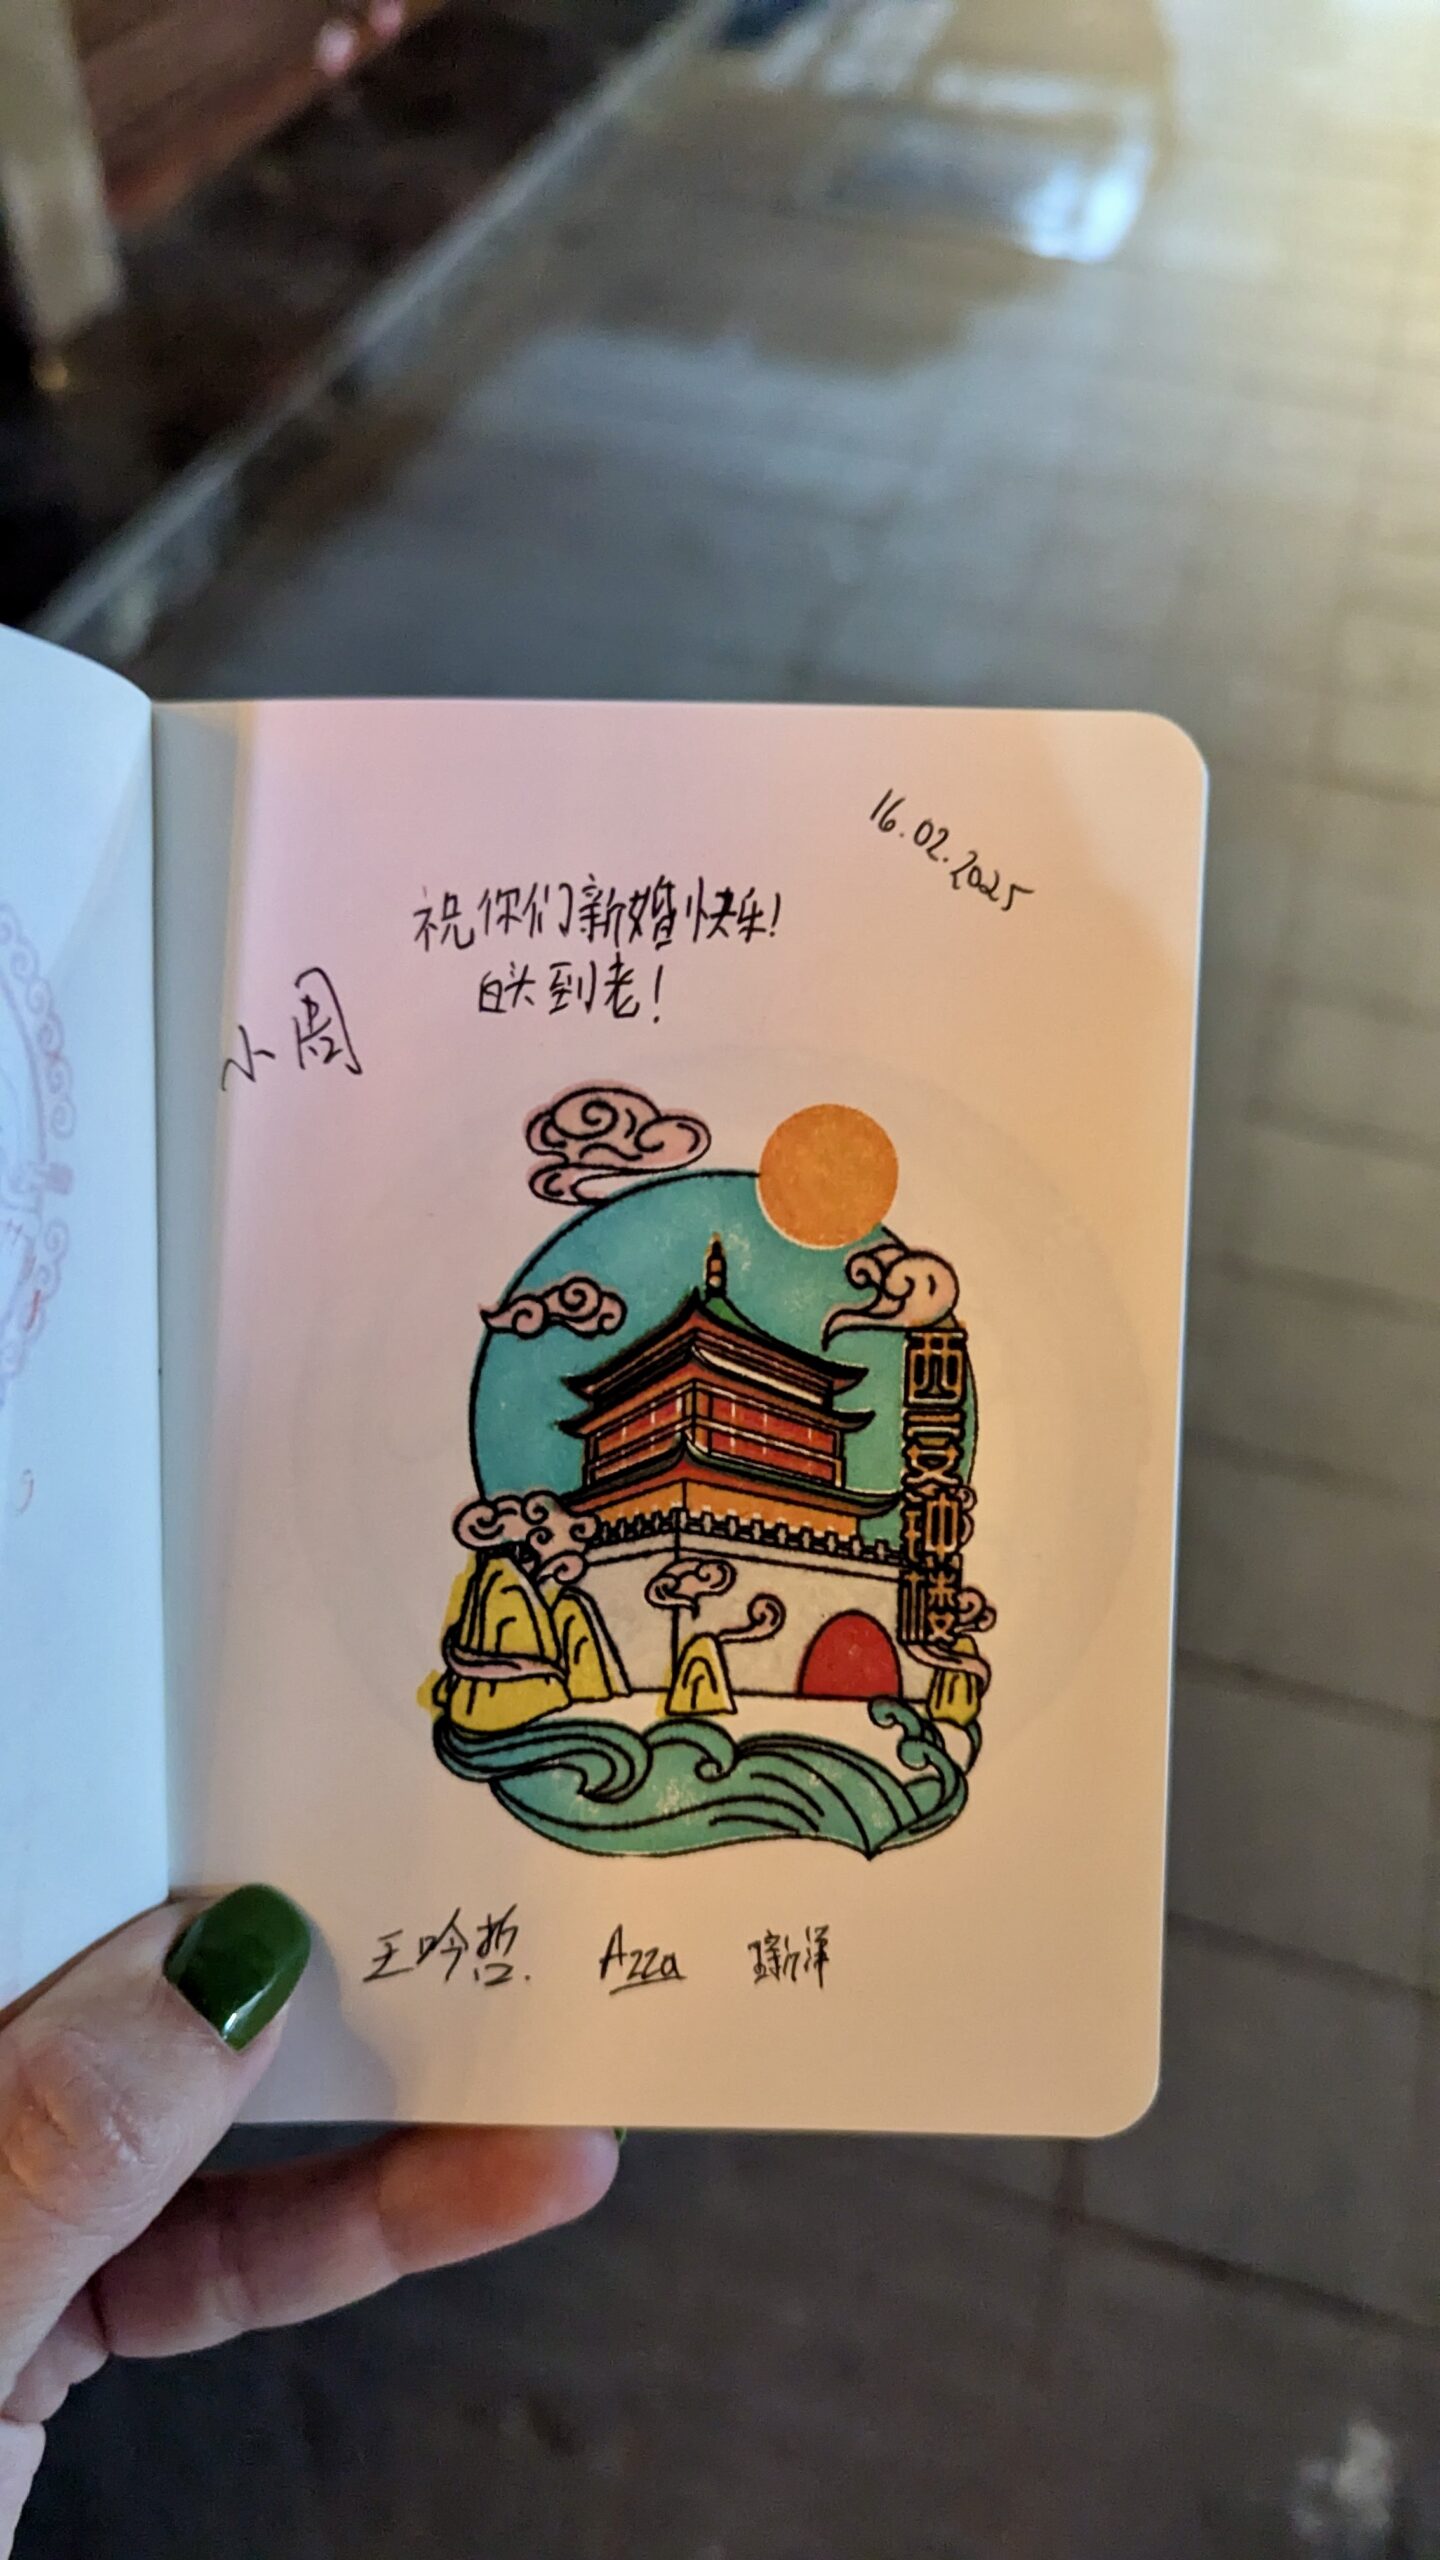 16.02.2025
祝你们新婚快乐!
白头到老!
小周
西安钟楼
王吟哲.
Azza